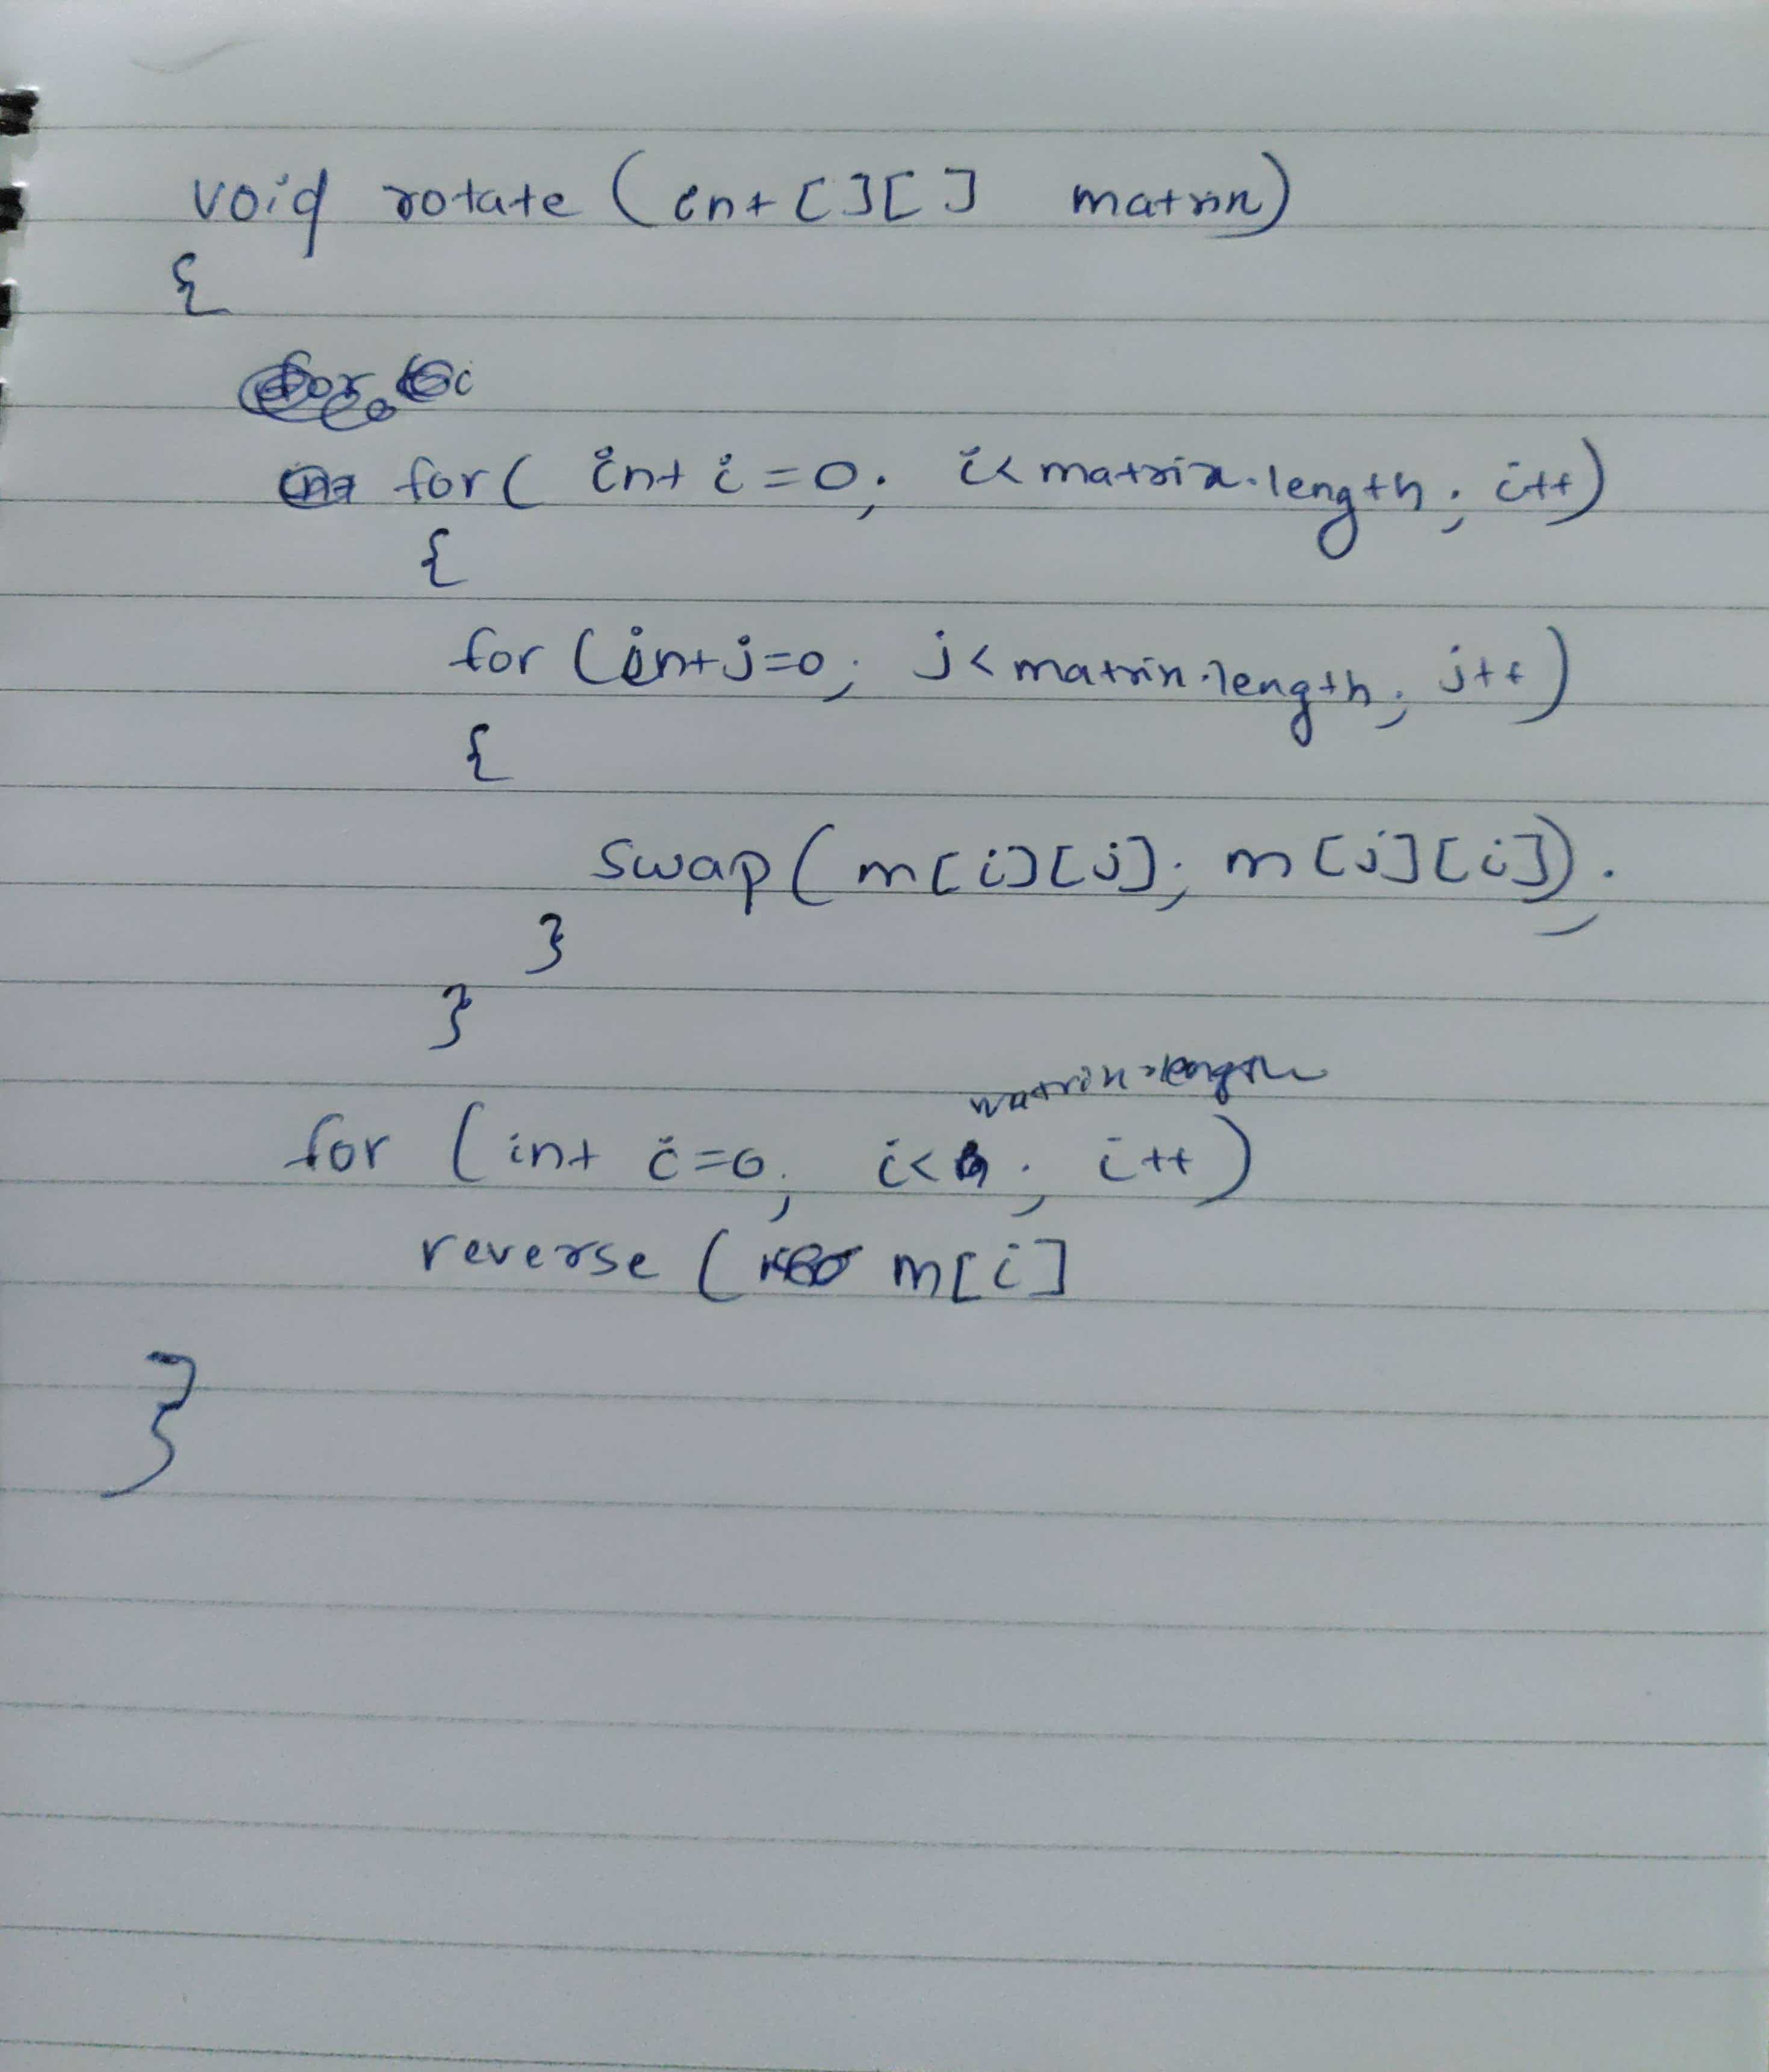 void rotate (int [][] matrix)
{
for ( int i = 0; i< matrix.length; i++)
{
for (int j=0; j< matrix.length; j++)
{
swap( m[i][j]; m[j][i]);
}
}
matrix.length
for ( int i=0; i< ; i++)
reverse ( m[i]
}